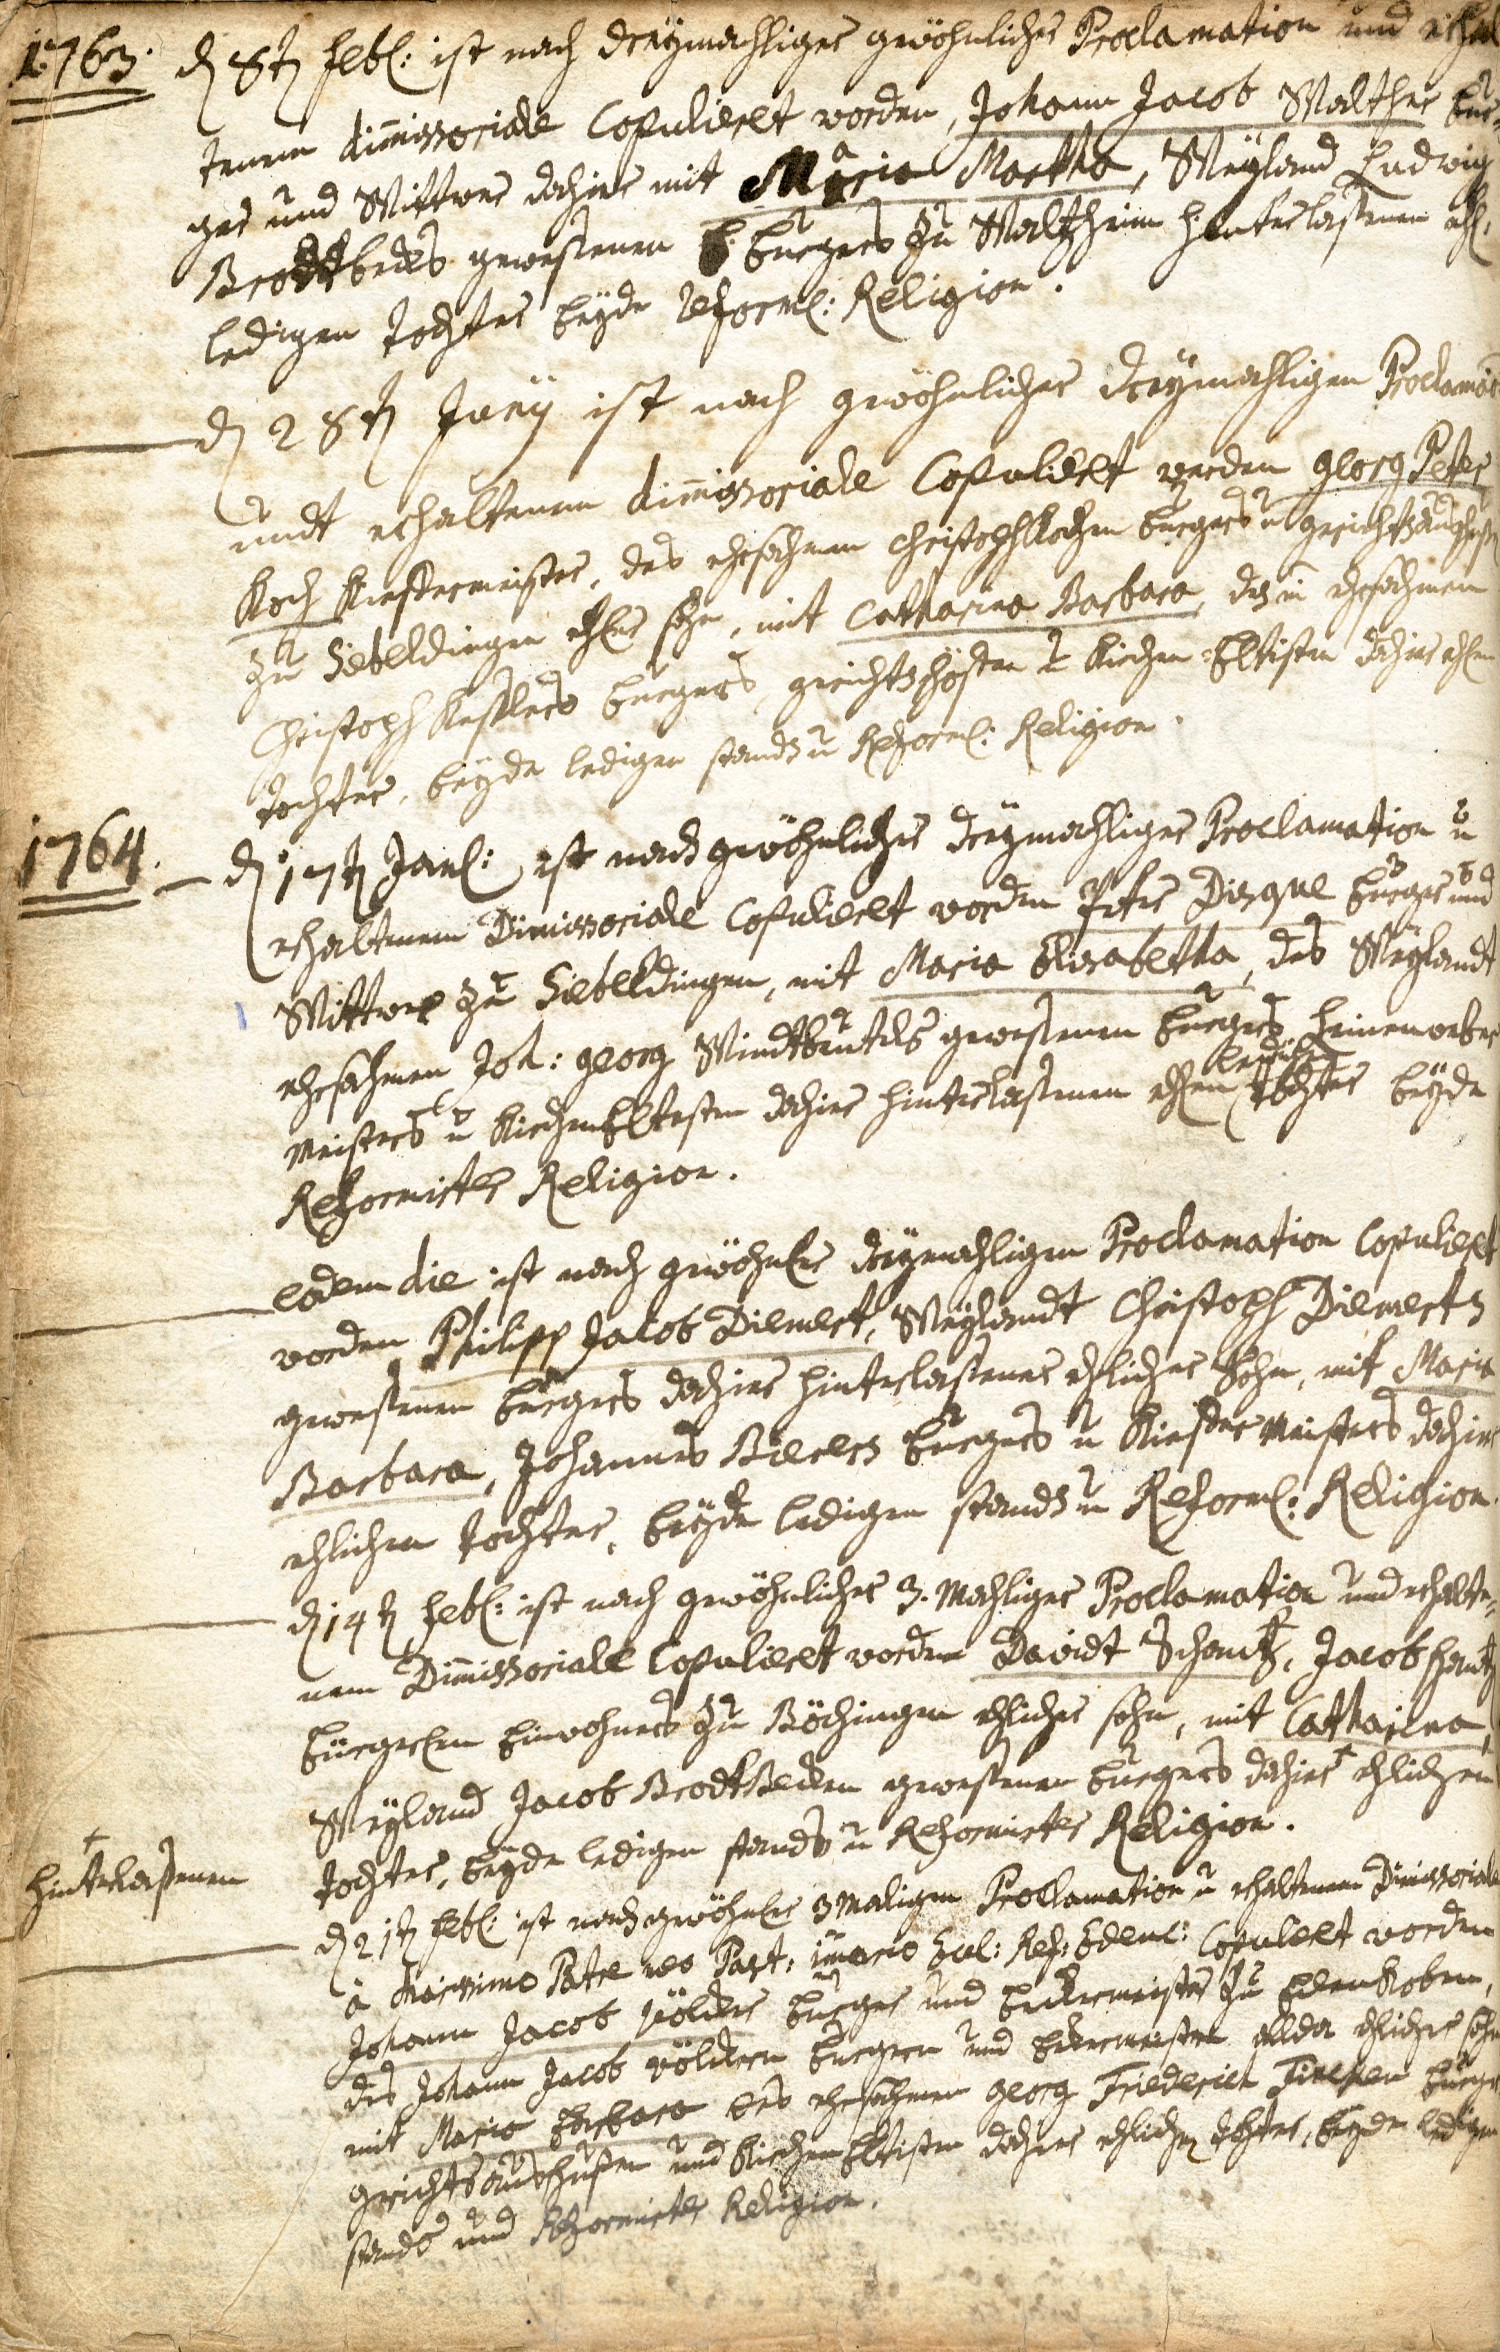 1763. d 8t Febr: ist nach dreymahliger gewöhnlicher Proclamation und erhal
tenem dimissoriale Copulieret worden, Johann Jacob Walther bur-
ger und Wittwer dahier mit Maria Martha, Weyland Ludwig
Brodtbecks gewessenen burgers zu Waltzheim hinterlassenen ehl.
ledigen Tochter beyde reform: Religion.
d 28t Juny ist nach gewöhnlicher dreymahligen Proclamaõ
undt erhaltenem dimissoriale Copulieret worden Georg Peter
Koch Kiefermeister, des ehrsahmen Christoph Kochen burgers u gerichts
zu Siebeldingen ehler sohn, mit Catharina Barbara, des ehrsahmen
Christoph Kesslers burgers, gerichtsschöffen u Kirchen-Eltisten dahier ehlen
Tochter, beyde ledigen stands u Reform: Religion.
1764. d 17t Janr: ist nach gewöhnlicher dreymahliger Proclamation u
erhaltenem Dimissoriale Copulieret worden Peter Disque burger und
Wittwer zu Siebeldingen, mit Maria Elisabetha, des Weylandt
ehrsahmen Joh: Georg Windtbeutels gewessenen burgers, Leinenweber
meisters u Kirchen Eltesten dahier hinterlassenen ehlen ledigen Tochter beyde
Reformirter Religion.
eodem die ist nach gewöhnler dreymahligen Proclamation Copulieret
worden Philipp Jacob Diemert, Weylandt Christoph Diemerts
gewessenen burgers dahier hinterlassener ehlicher Sohn, mit Maria
Barbara, Johannes Bierers burgers u Kiefermeisters dahier
ehlichen Tochter, beyde ledigen stands u Reform: Religion.
d 14t Febr: ist nach gewöhnlicher 3. mahliger Proclamation und erhalte-
nem Dimissoriale Copulieret worden Davidt Schantz, Jacob Schantz
burgerlen Einwohners zu Böchingen ehlicher sohn, mit Catharina,
Weyland Jacob Brodtbecken gewessenen burgers dahier + ehlichen
Tochter, beyde ledigen stands u Reformirter Religion.
+ hinterlassenen
d 21t Febr: ist nach gewöhnler 3 maligen Proclamation u erhaltenem Dimissoriale
à charissimo Patre meo Past: primario Eccl: Ref: Edenc: Copuleret worden
Johann Jacob Völcker burger und beckermeister zu Edenkoben,
des Johann Jacob Völckern burgern und beckermeistern allda ehlicher sohn
mit Maria Barbara des ehrsahmen Georg Friederich burger
gerichtsausschussen und Kirchen Eltisten dahier ehlichen tochter, beyde ledigen
stands und Reformirter Religion.